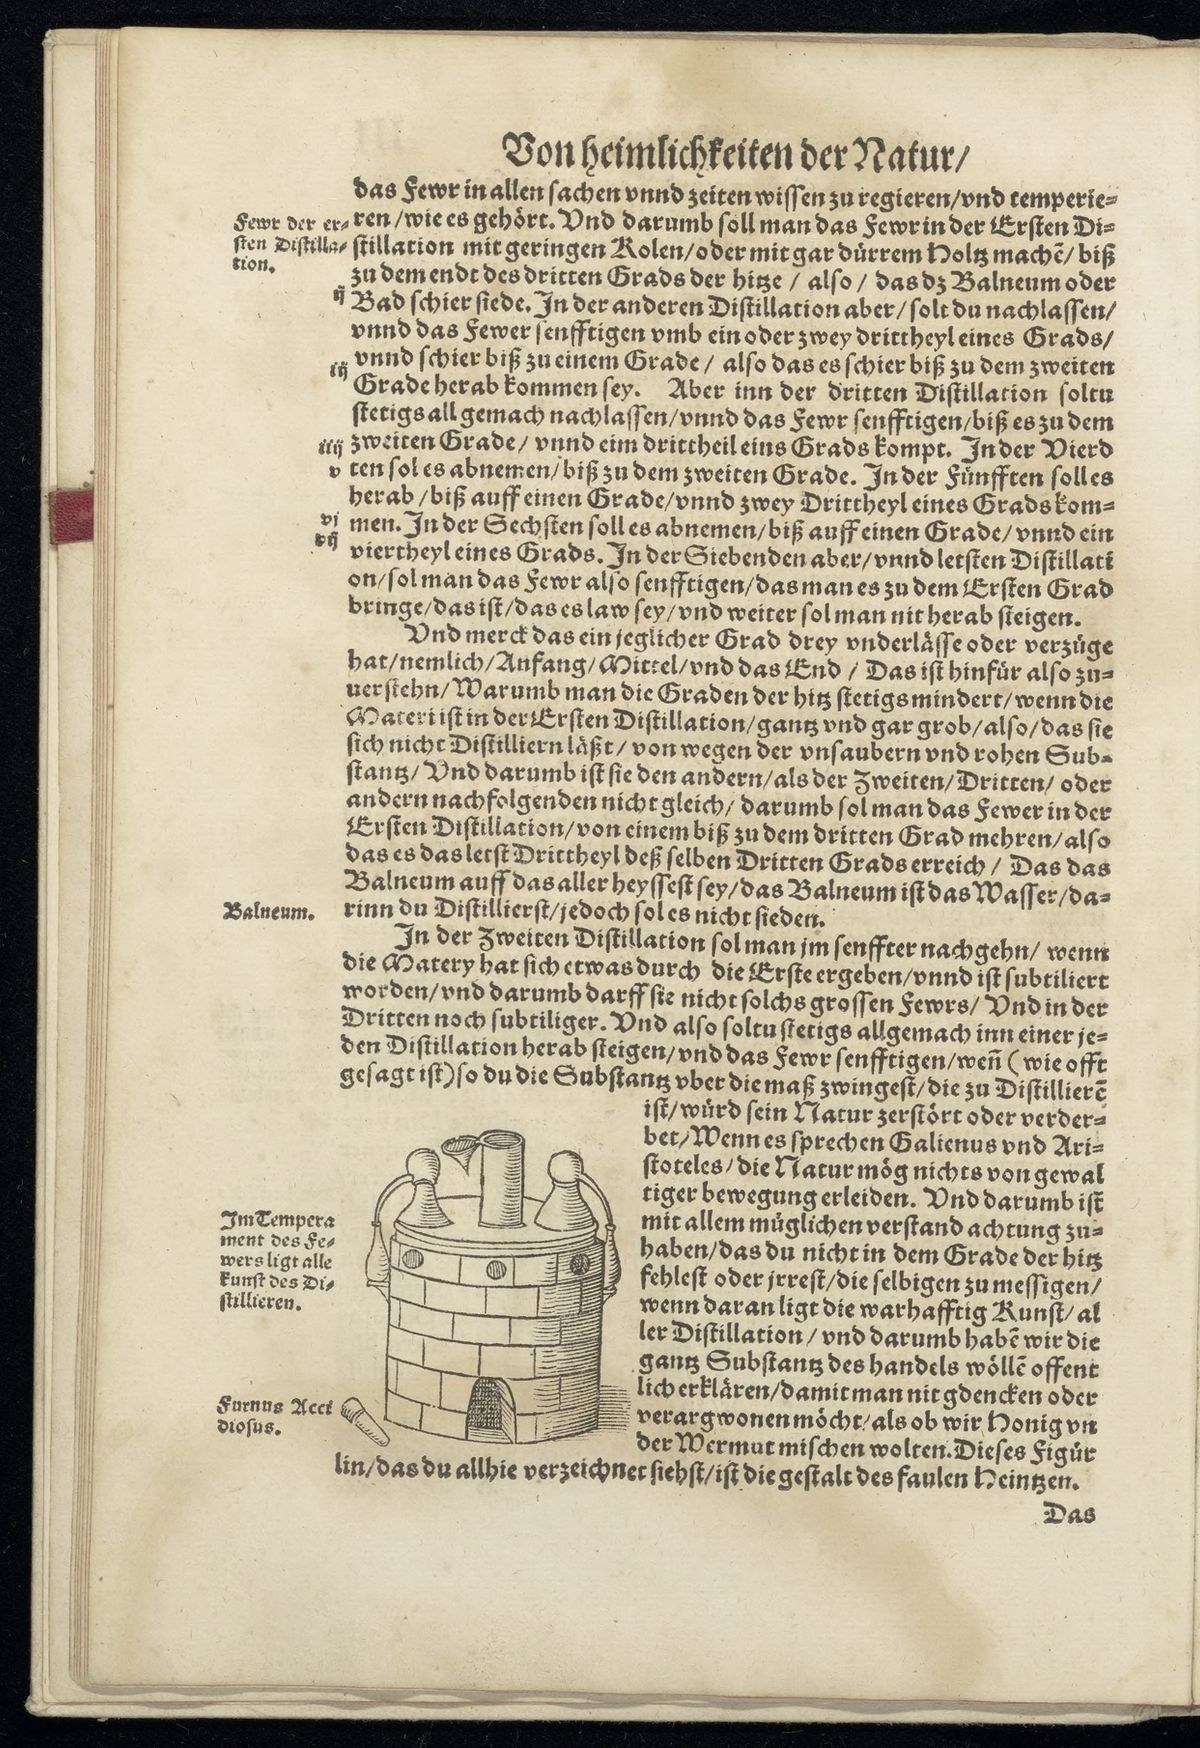 Von heimlichkeiten der Natur/
das Fewr in allen sachen vnnd zeiten wissen zu regieren/vnd temperie=
ren/wie es gehört. Vnd darumb soll man das Fewr in der Ersten Di=
stillation mit geringen Kolen/oder mit gar dürrem Holtz machẽ/biß
zu dem endt des dritten Grads der hitze / also / das dz Balneum oder
Bad schier siede. In der anderen Distillation aber/solt du nachlassen/
vnnd das Fewer senfftigen vmb ein oder zwey drittheyl eines Grads/
vnnd schier biß zu einem Grade / also das es schier biß zu dem zweiten
Grade herab kommen sey. Aber inn der dritten Distillation soltu
stetigs allgemach nachlassen/vnnd das Fewr senfftigen/biß es zu dem
zweiten Grade/ vnnd eim drittheil eins Grads kompt. In der Vierd
ten sol es abnemen/biß zu dem zweiten Grade. In der Fünfften soll es
herab/biß auff einen Grade/vnnd zwey Drittheyl eines Grads kom=
men. In der Sechsten soll es abnemen/biß auff einen Grade/vnnd ein
viertheyl eines Grads. In der Siebenden aber/vnnd letsten Distillati
on/sol man das Fewr also senfftigen/das man es zu dem Ersten Grad
bringe/das ist/das es law sey/vnd weiter sol man nit herab steigen.
Vnd merck das ein jeglicher Grad drey vnderlässe oder verzüge
hat/nemlich/Anfang/Mittel/vnd das End / Das ist hinfür also zu=
uerstehn/Warumb man die Graden der hitz stetigs mindert/wenn die
Materi ist in der Ersten Distillation/gantz vnd gar grob/also/das sie
sich nicht Distilliern läßt/ von wegen der vnsaubern vnd rohen Sub=
stantz/ Vnd darumb ist sie den andern/als der Zweiten/Dritten/ oder
andern nachfolgenden nicht gleich/ darumb sol man das Fewer in der
Ersten Distillation/von einem biß zu dem dritten Grad mehren/also
das es das letst Drittheyl deß selben Dritten Grads erreich / Das das
Balneum auff das aller heyssest sey/das Balneum ist das Wasser/da=
rinn du Distillierst/jedoch sol es nicht sieden.
In der Zweiten Distillation sol man jm senffter nachgehn/ wenn
die Matery hat sich etwas durch die Erste ergeben/vnnd ist subtiliert
worden/vnd darumb darff sie nicht solchs grossen Fewrs/ Vnd in der
Dritten noch subtiliger. Vnd also soltu stetigs allgemach inn einer je=
den Distillation herab steigen/vnd das Fewr senfftigen/weñ (wie offt
gesagt ist) so du die Substantz vber die maß zwingest/die zu Distillierẽ
ist/würd sein Natur zerstört oder verder=
bet/Wenn es sprechen Galienus vnd Ari=
stoteles/die Natur mög nichts von gewal
tiger bewegung erleiden. Vnd darumb ist
mit allem müglichen verstand achtung zu=
haben/das du nicht in dem Grade der hitz
fehlest oder jrrest/die selbigen zu messigen/
wenn daran ligt die warhafftig Kunst/al
ler Distillation/vnd darumb habẽ wir die
gantz Substantz des handels wöllẽ offent
lich erklären/damit man nit gdencken oder
verargwonen möcht/als ob wir Honig vn
der Wermut mischen wolten. Dieses Figür
lin/das du allhie verzeichnet siehst/ist die gestalt des faulen Heintzen.
Das
Fewr der er=
sten Distilla=
tion.
ij
iij
iiij
v
vj
vij
Balneum.
Im Tempera
ment des Fe=
wers ligt alle
kunst des Di=
stillieren.
Furnus Acci
diosus.